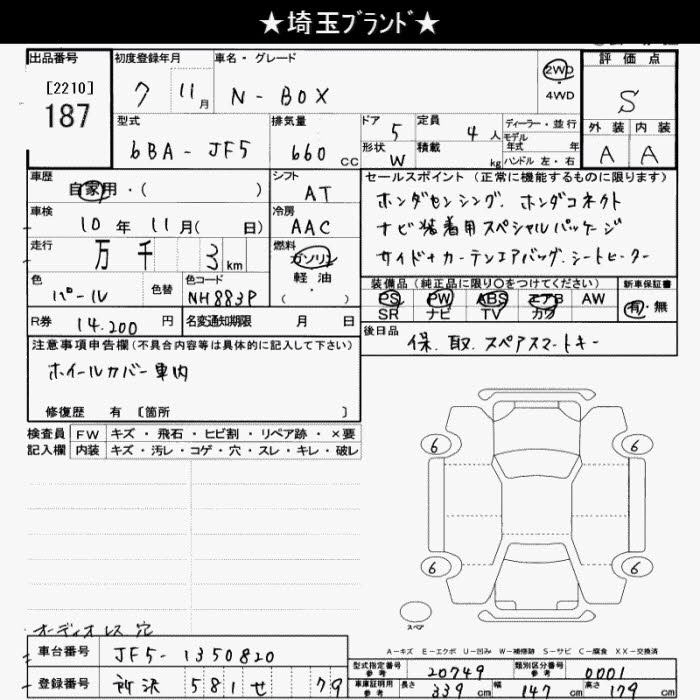 ★埼玉ブランド★
出品番号
[2210]
187
初度登録年月
7 11月
車名・グレード
N-BOX
2WD
・
4WD
評価点
S
外装 内装
A A
型式
6BA-JF5
排気量
660 CC
ドア
5
形状
W
定員
4人
積載
kg
ディーラー・並行
モデル
年式 年
ハンドル 左・右
車歴
自家用・( )
シフト
AT
車検
10年11月( 日)
冷房
AAC
走行
万千 3km
燃料
ガソリン
軽油
・
( )
色
パール
色替
色コード
NH883P
R券 14,200 円
名変通知期限 月 日
セールスポイント(正常に機能するものに限ります)
ホンダセンシング、ホンダコネクト
ナビ装着用スペシャルパッケージ
サイド+カーテンエアバッグ、シートヒーター
装備品(純正品に限り○をつけてください)
PS PW ABS エアB AW
SR ナビ TV カワ
新車保証書
有・無
後日品
保、取、スペアスマートキー
注意事項申告欄(不具合内容等は具体的に記入して下さい)
ホイールカバー車内
修復歴 有 〔箇所 〕
検査員
記入欄
FW キズ・飛石・ヒビ割・リペア跡・×要
内装 キズ・汚レ・コゲ・穴・スレ・キレ・破レ
6 6
6 6
スペア
A-キズ E-エクボ U-凹み W-補修跡 S-サビ C-腐食 XX-交換済
オーディオレス穴
車台番号 JF5-1350820
登録番号 所沢 581 せ 79
型式指定番号
参考
20749
類別区分番号
参考
0001
車庫証明用
参考
長さ 339cm 幅 147cm 高さ 179cm